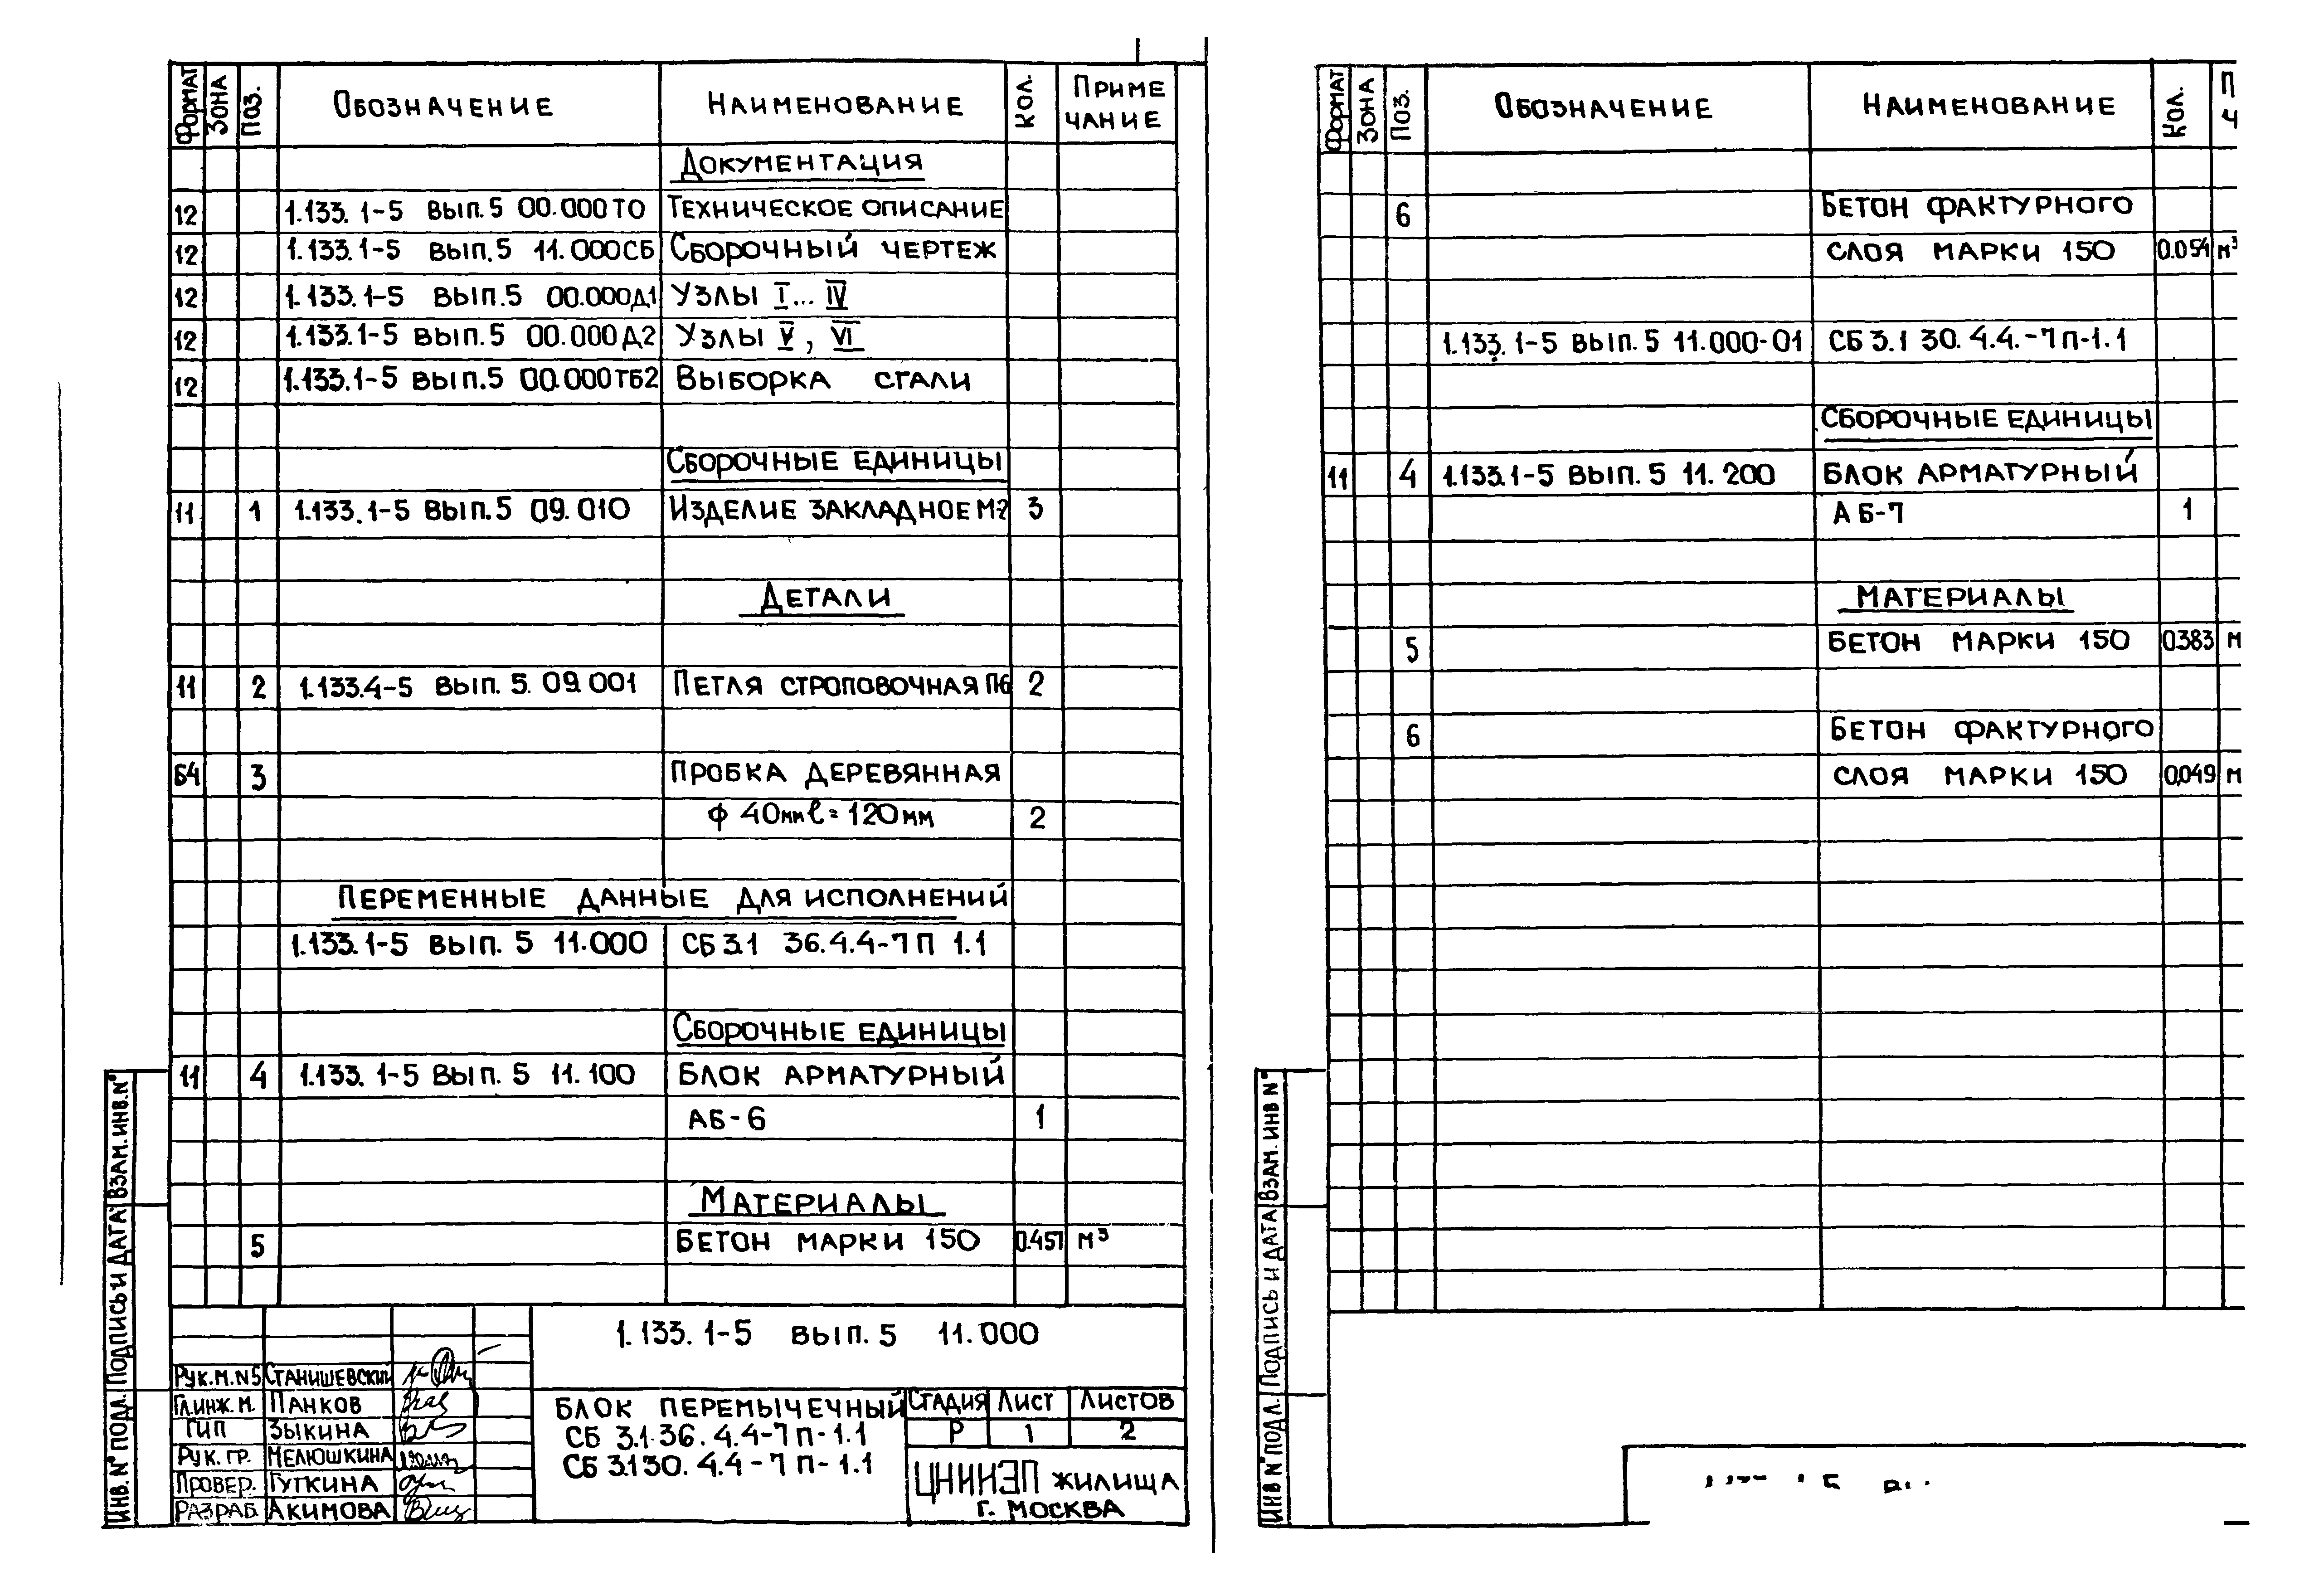 ФОРМАТ ЗОНА ПОЗ. ОБОЗНАЧЕНИЕ НАИМЕНОВАНИЕ КОЛ. ПРИМЕ
ЧАНИЕ
ДОКУМЕНТАЦИЯ
12 1.133.1-5 ВЫП.5 00.000ТО ТЕХНИЧЕСКОЕ ОПИСАНИЕ
12 1.133.1-5 ВЫП.5 11.000СБ СБОРОЧНЫЙ ЧЕРТЕЖ
12 1.133.1-5 ВЫП.5 00.000Д1 УЗЛЫ I...IV
12 1.133.1-5 ВЫП.5 00.000Д2 УЗЛЫ V, VI
12 1.133.1-5 ВЫП.5 00.000ТБ2 ВЫБОРКА СТАЛИ
СБОРОЧНЫЕ ЕДИНИЦЫ
11 1 1.133.1-5 ВЫП.5 09.010 ИЗДЕЛИЕ ЗАКЛАДНОЕ М-2 3
ДЕТАЛИ
11 2 1.133.4-5 ВЫП. 5. 09.001 ПЕТЛЯ СТРОПОВОЧНАЯ П6 2
Б4 3 ПРОБКА ДЕРЕВЯННАЯ
ф 40мм ℓ=120мм 2
ПЕРЕМЕННЫЕ ДАННЫЕ ДЛЯ ИСПОЛНЕНИЙ
1.133.1-5 ВЫП. 5 11.000 СБ 3.1 36.4.4-7П 1.1
СБОРОЧНЫЕ ЕДИНИЦЫ
11 4 1.133.1-5 ВЫП. 5 11.100 БЛОК АРМАТУРНЫЙ
АБ-6 1
МАТЕРИАЛЫ
5 БЕТОН МАРКИ 150 0.457 м³
1.133.1-5 ВЫП.5 11.000
РУК.М.N5 СТАНИШЕВСКИЙ
ГЛ.ИНЖ.М. ПАНКОВ
ГИП ЗЫКИНА
РУК. ГР. МЕЛЮШКИНА
ПРОВЕР. ГУТКИНА
РАЗРАБ. АКИМОВА
БЛОК ПЕРЕМЫЧЕЧНЫЙ
СБ 3.1.36.4.4-7П-1.1
СБ 3.130.4.4-7П-1.1
СТАДИЯ ЛИСТ ЛИСТОВ
Р 1 2
ЦНИИЭП ЖИЛИЩА
Г. МОСКВА
ИНВ.N° ПОДЛ. ПОДПИСЬ И ДАТА ВЗАМ.ИНВ.N°
ФОРМАТ ЗОНА ПОЗ. ОБОЗНАЧЕНИЕ НАИМЕНОВАНИЕ КОЛ. П
Ч
6 БЕТОН ФАКТУРНОГО
СЛОЯ МАРКИ 150 0.054 м³
1.133.1-5 ВЫП.5 11.000-01 СБ 3.1 30.4.4.-7П-1.1
СБОРОЧНЫЕ ЕДИНИЦЫ
11 4 1.133.1-5 ВЫП.5 11.200 БЛОК АРМАТУРНЫЙ
АБ-7 1
МАТЕРИАЛЫ
5 БЕТОН МАРКИ 150 0.383 м
6 БЕТОН ФАКТУРНОГО
СЛОЯ МАРКИ 150 0.049 м
ИНВ N° ПОДЛ. ПОДПИСЬ И ДАТА ВЗАМ. ИНВ N°